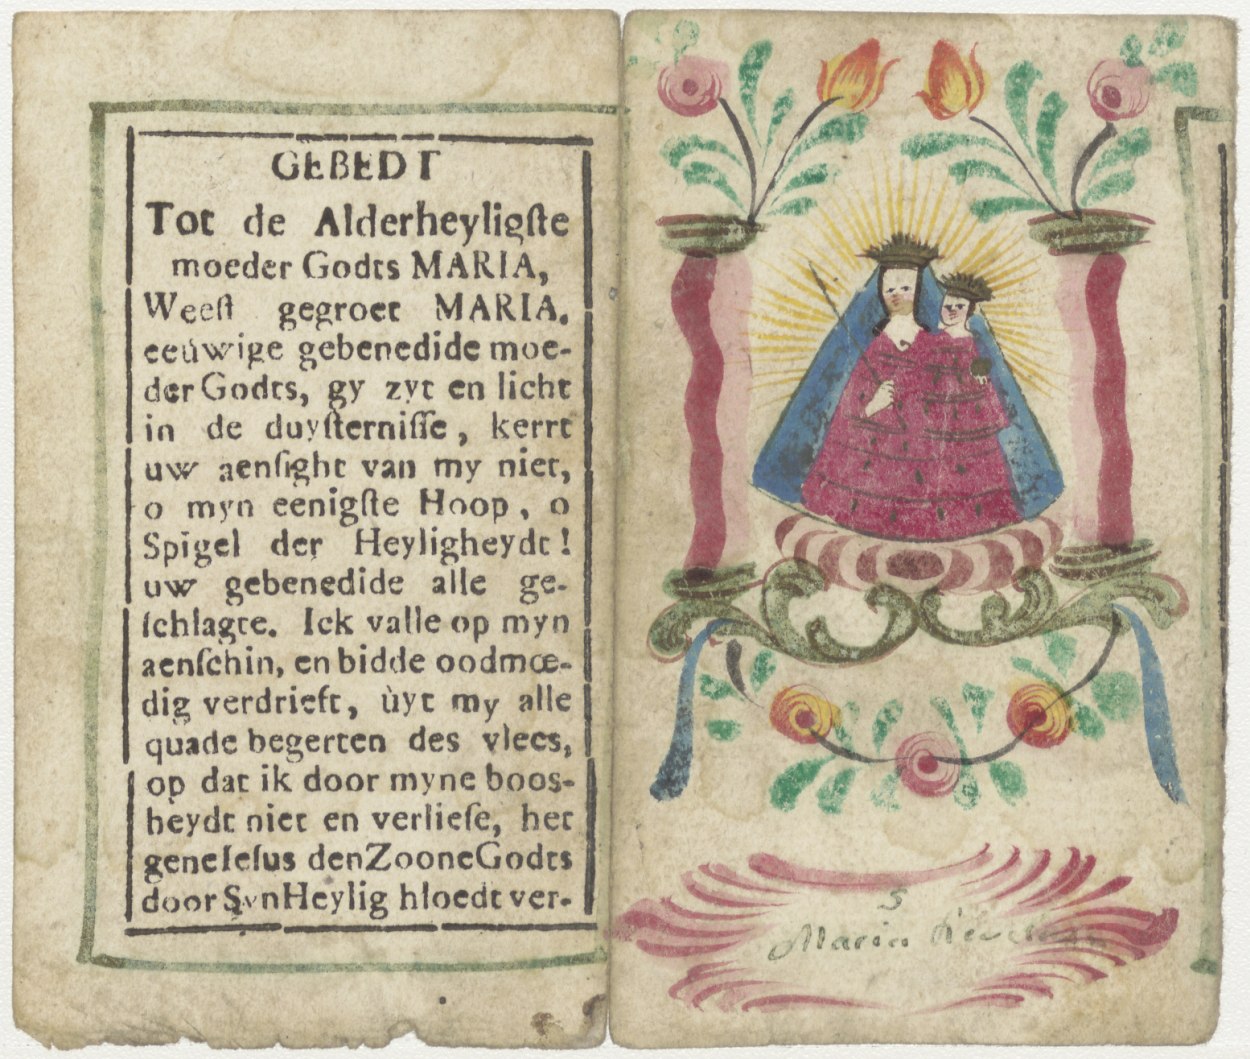 GEBEDT
Tot de Alderheyligſte
moeder Godts MARIA,
Weeſt gegroet MARIA.
eeúwige gebenedide moe-
der Godts, gy zyt en licht
in de duyſterniſſe, kerrt
uw aenſight van my niet,
o myn eenigſte Hoop, o
Spigel der Heyligheydt!
uw gebenedide alle ge-
ſchlagte. Ick valle op myn
aenſchin, en bidde oodmœ-
dig verdrieft, ùyt my alle
quade begerten des vlees,
op dat ik door myne boos-
heydt niet en verlieſe, het
gene Ieſus den Zoone Godts
door Syn Heylig hloedt ver-
S
Maria